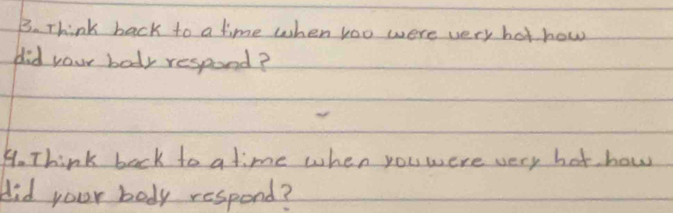 3. Think back to a time when you were very hot how
did your body respond?
4. Think back to a time when you were very hot. how
did your body respond?